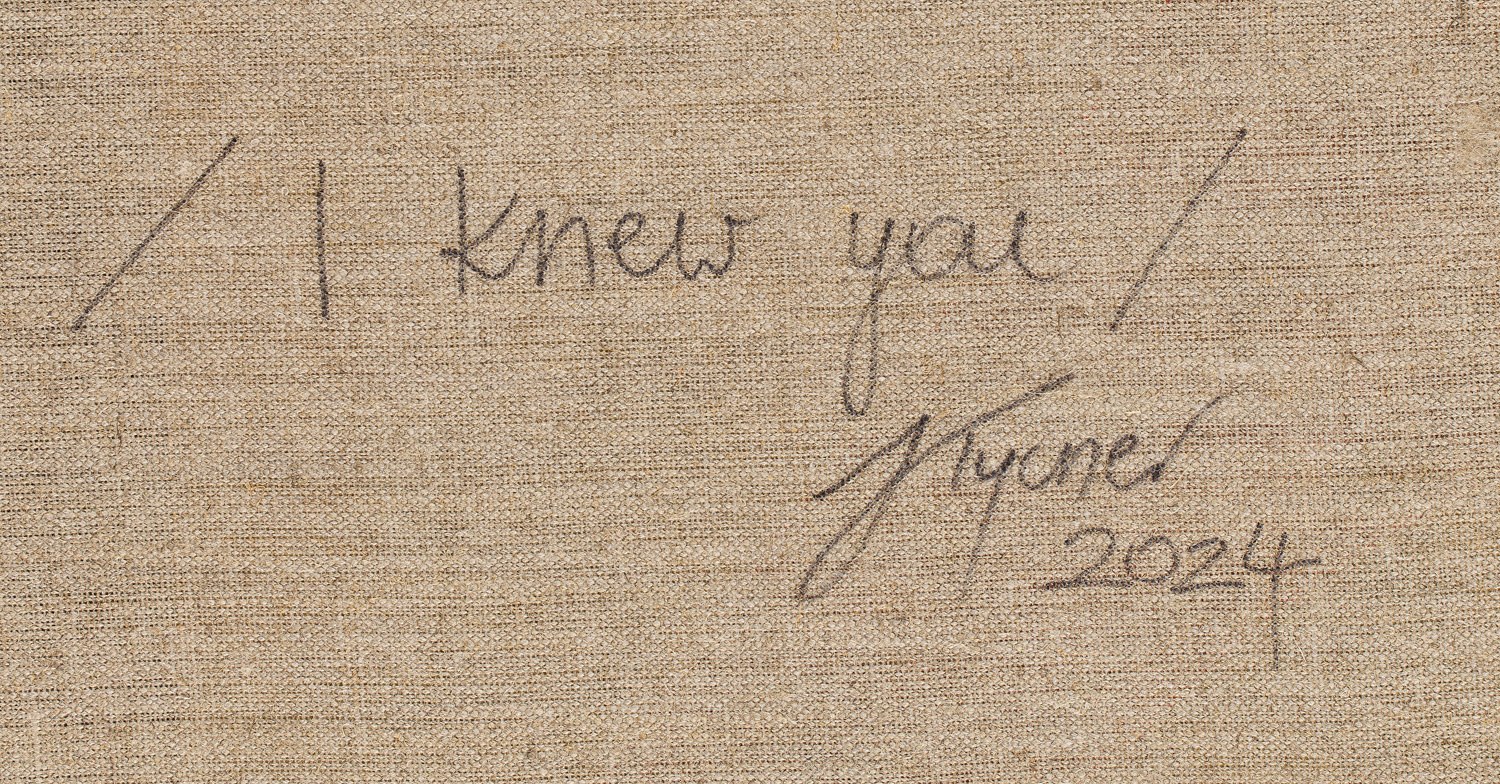 / I knew you /
J Tycner
2024